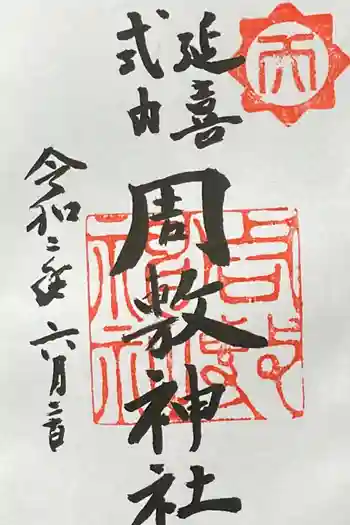 延喜
式内
周敷神社
令和二年六月二日